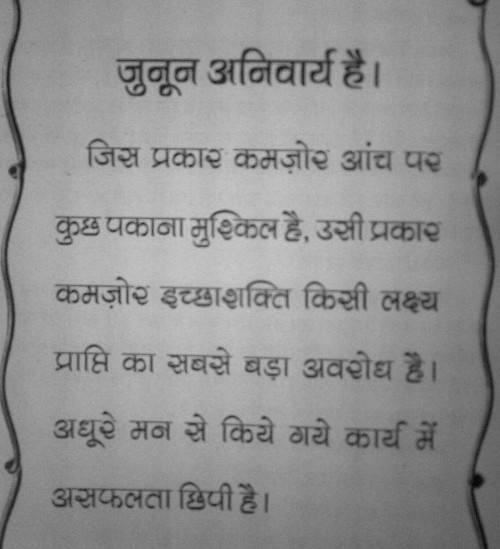 जुनून अनिवार्य है।
जिस प्रकार कमज़ोर आंच पर
कुछ पकाना मुश्किल है, उसी प्रकार
कमज़ोर इच्छाशक्ति किसी लक्ष्य
प्राप्ति का सबसे बड़ा अवरोध है।
अधूरे मन से किये गये कार्य में
असफलता छिपी है।